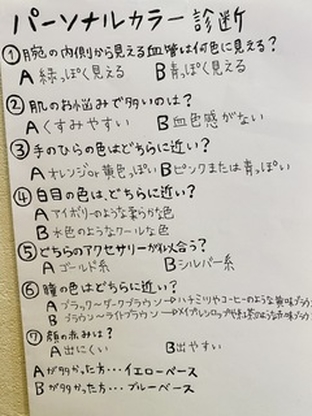 パーソナルカラー診断
①腕の内側から見える血管は何色に見える?
A 緑っぽく見える B 青っぽく見える
②肌のお悩みで多いのは?
A くすみやすい B 血色感がない
③手のひらの色はどちらに近い?
A オレンジor黄色っぽい B ピンクまたは青っぽい
④白目の色は、どちらに近い?
A アイボリーのような柔らかな色
B 水色のようなクールな色
⑤どちらのアクセサリーが似合う?
A ゴールド系 B シルバー系
⑥瞳の色はどちらに近い?
A ブラック〜ダークブラウン→ハチミツやコーヒーのような黄味ブラ
B ブラウン〜ライトブラウン→メイプルシロップや
⑦顔の赤みは?
A 出にくい B 出やすい
Aが多かった方・・・イエローベース
Bが多かった方・・・ブルーベース